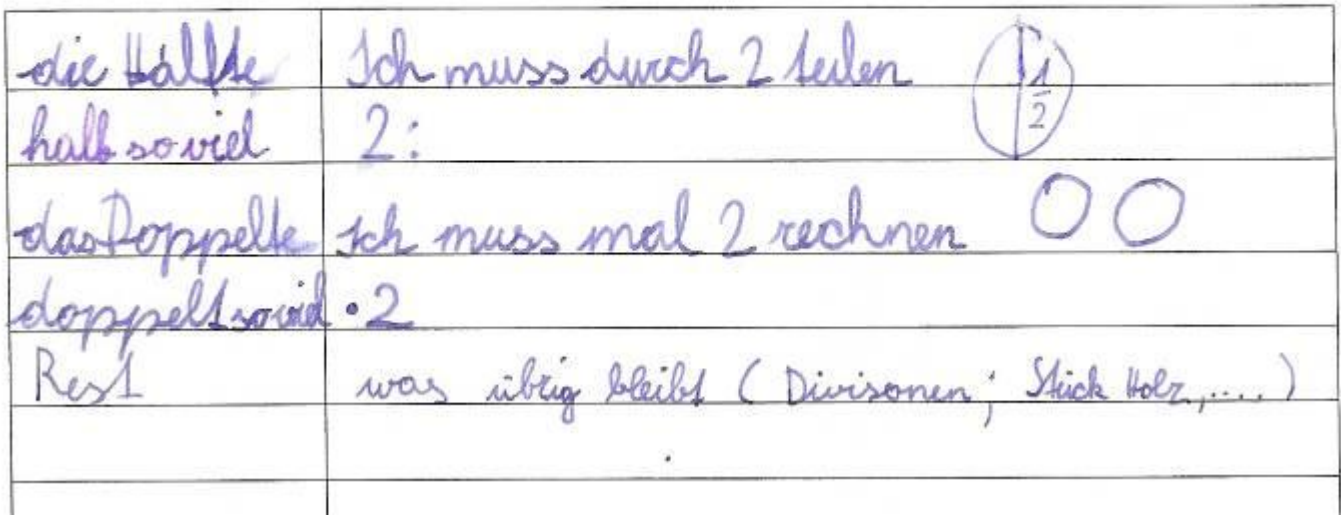 die Hälfte Ich muss durch 2 teilen 1/2
halb soviel 2:
das Doppelte Ich muss mal 2 rechnen
doppelt soviel •2
Rest was übrig bleibt (Divisonen; Stück Holz,....)